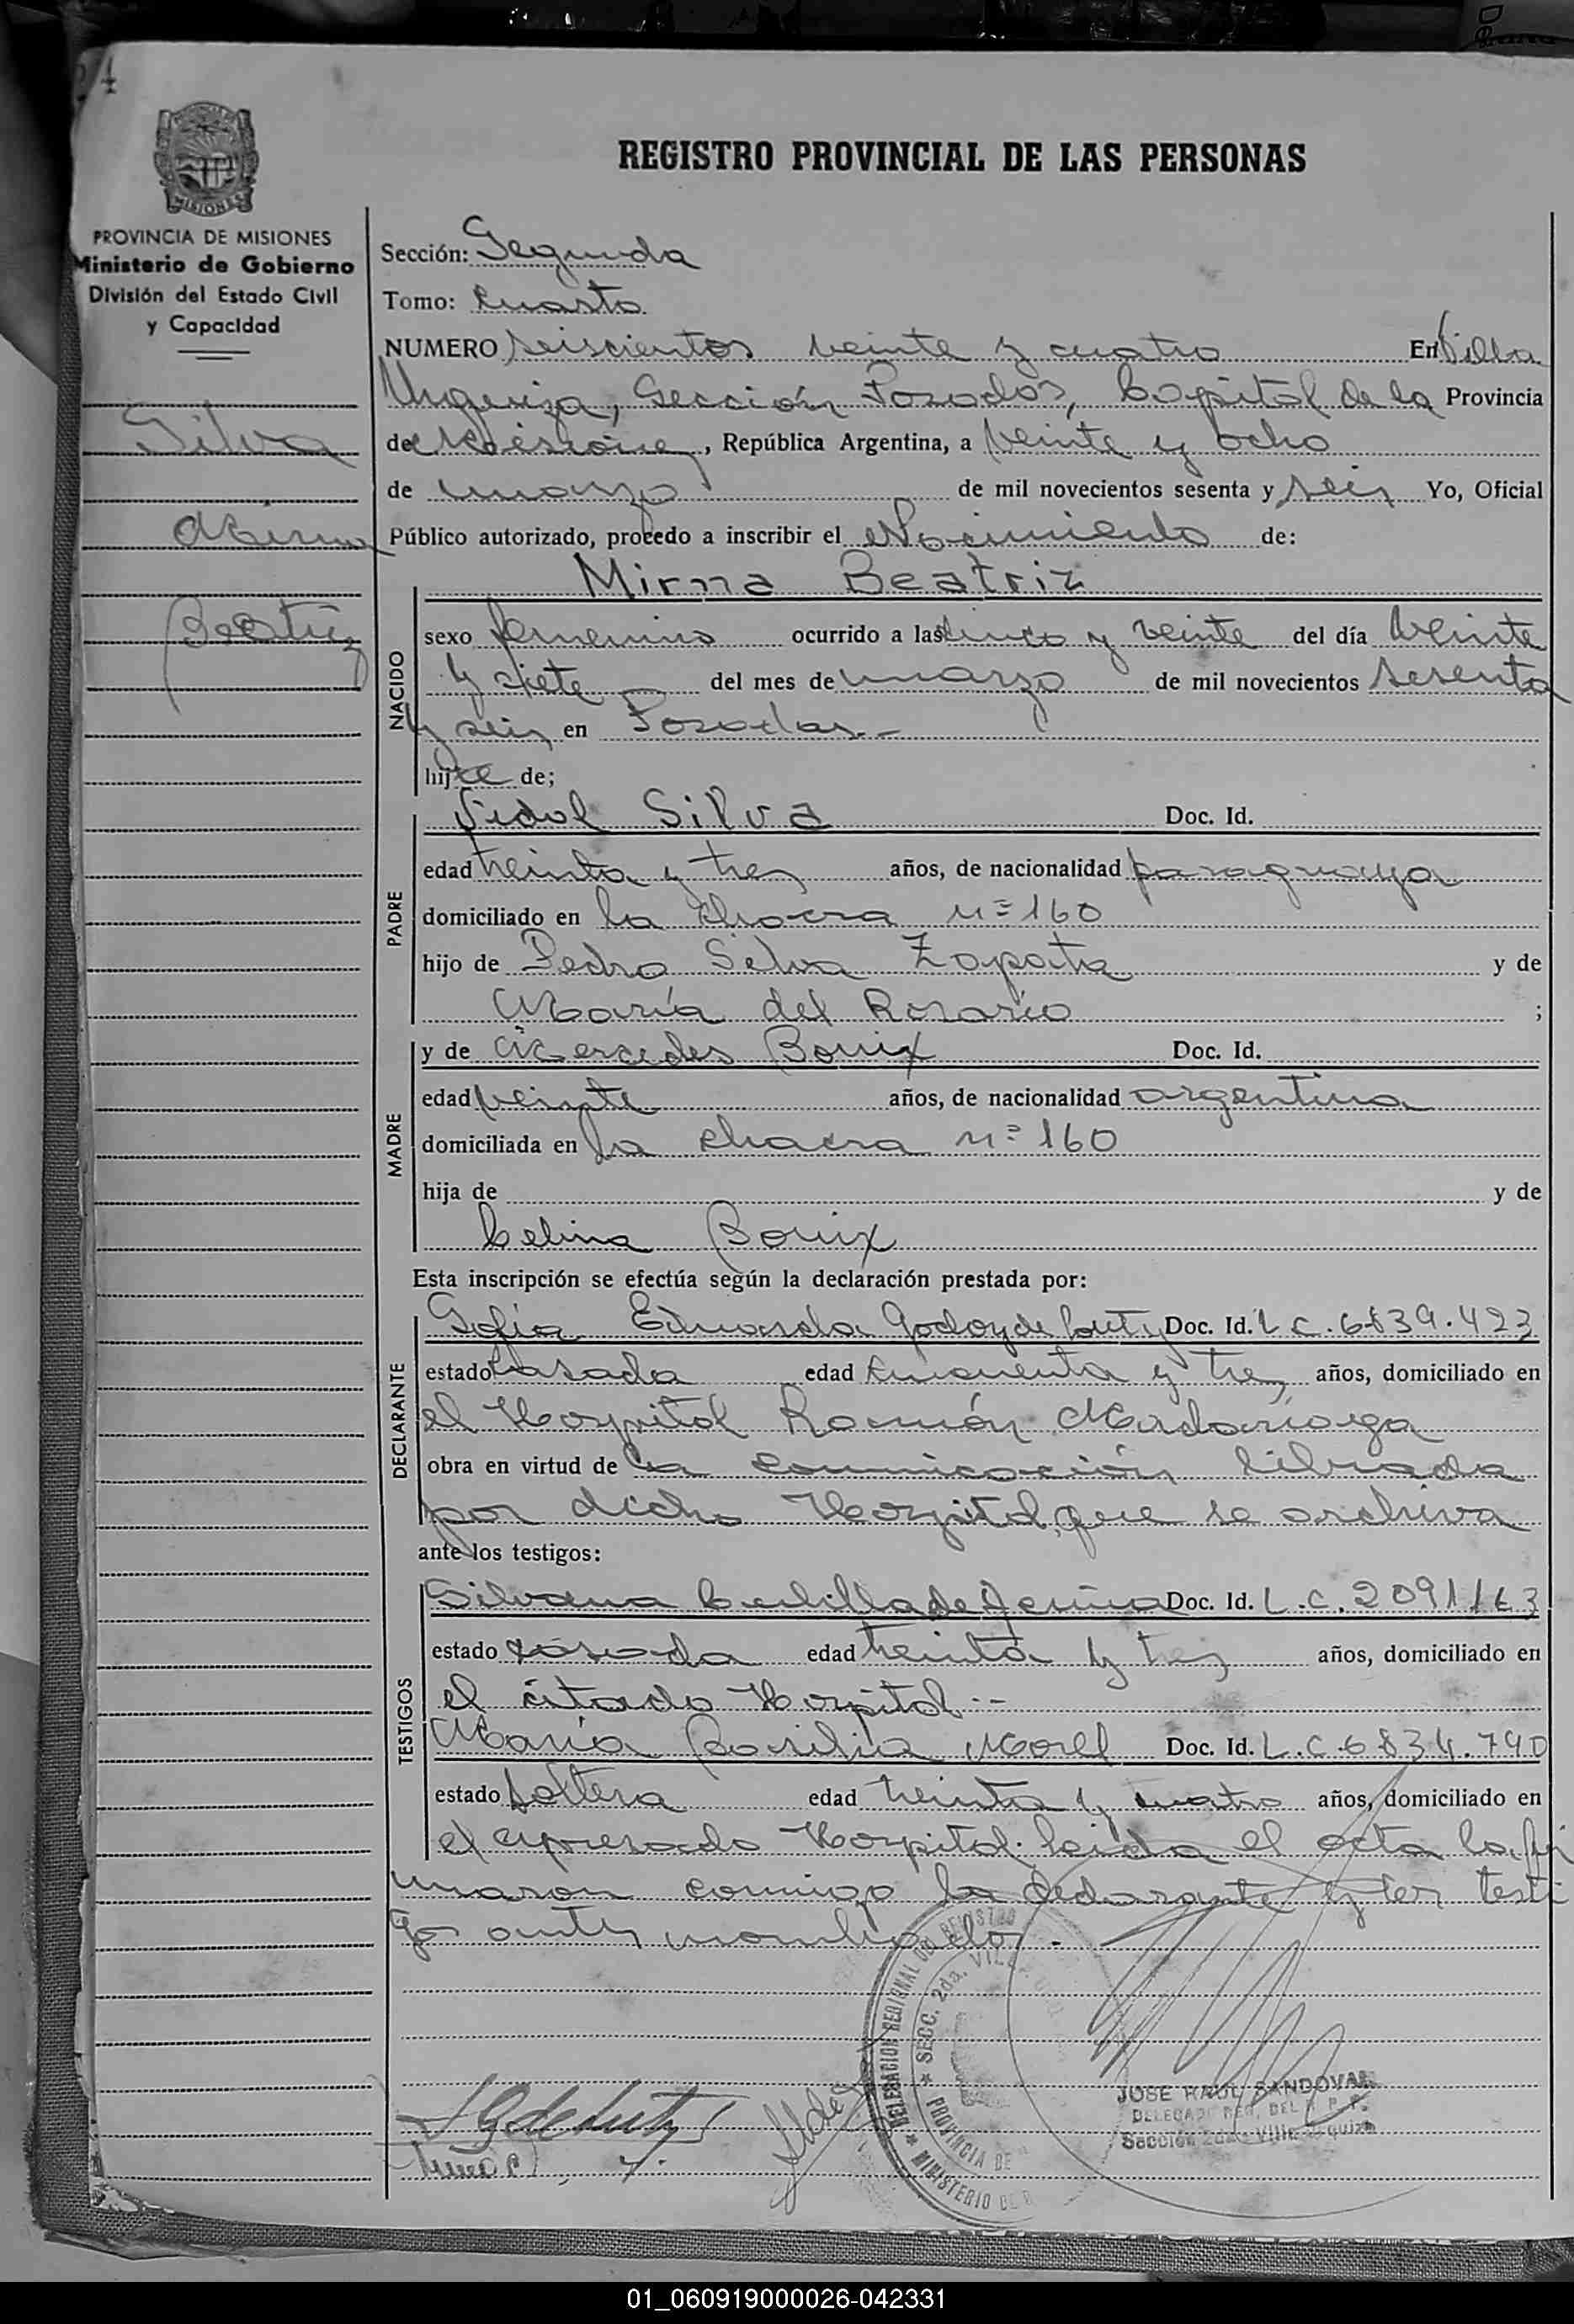 24
REGISTRO PROVINCIAL DE LAS PERSONAS
MISIONES
PROVINCIA DE MISIONES
Ministerio de Gobierno
División del Estado Civil
y Capacidad
Silva
Mirna
Beatriz
Sección: Segunda
Tomo: Cuarto
NUMERO Seiscientos veinte y cuatro En Villa
Urquiza, Sección Posadas, Capital de la Provincia
de Misiones, República Argentina, a veinte y ocho
de marzo de mil novecientos sesenta y seis Yo, Oficial
Público autorizado, procedo a inscribir el Nacimiento de:
Mirna Beatriz
NACIDO
sexo femenino ocurrido a las cinco y veinte del día veinte
y siete del mes de marzo de mil novecientos sesenta
y seis en Posadas.-
hija de;
PADRE
Vidal Silva Doc. Id.
edad treinta y tres años, de nacionalidad paraguaya
domiciliado en la Chacra nº 160
hijo de Pedro Silva Zapata y de
María del Rosario ;
MADRE
y de Mercedes Bonix Doc. Id.
edad veinte años, de nacionalidad argentina
domiciliada en la chacra nº 160
hija de y de
Celina Bonix
Esta inscripción se efectúa según la declaración prestada por:
DECLARANTE
Sofía Eduarda Godoy de Doc. Id. L C. 6839.423
estado casada edad cincuenta y tres años, domiciliado en
el Hospital Ramón Madariaga
obra en virtud de la comunicación librada
por dicho Hospital, que se archiva
ante los testigos:
TESTIGOS
Silvana de Doc. Id. L.C. 2091163
estado casada edad treinta y tres años, domiciliado en
el citado Hospital.--
María Basilia Morel Doc. Id. L.C. 6834.790
estado soltera edad treinta y cuatro años, domiciliado en
el expresado Hospital. Leída el acta la fir
maron conmigo la declarante y los testi
gos antes nombrados.-
DELEGACION REGIONAL DEL REGISTRO
SECC. 2da. VILLA
PROVINCIA DE
MINISTERIO DE
JOSE RAUL SANDOVAL
DELEGADO REG. DEL R. P. P.
Sección 2da. Villa Urquiza
01_060919000026-042331